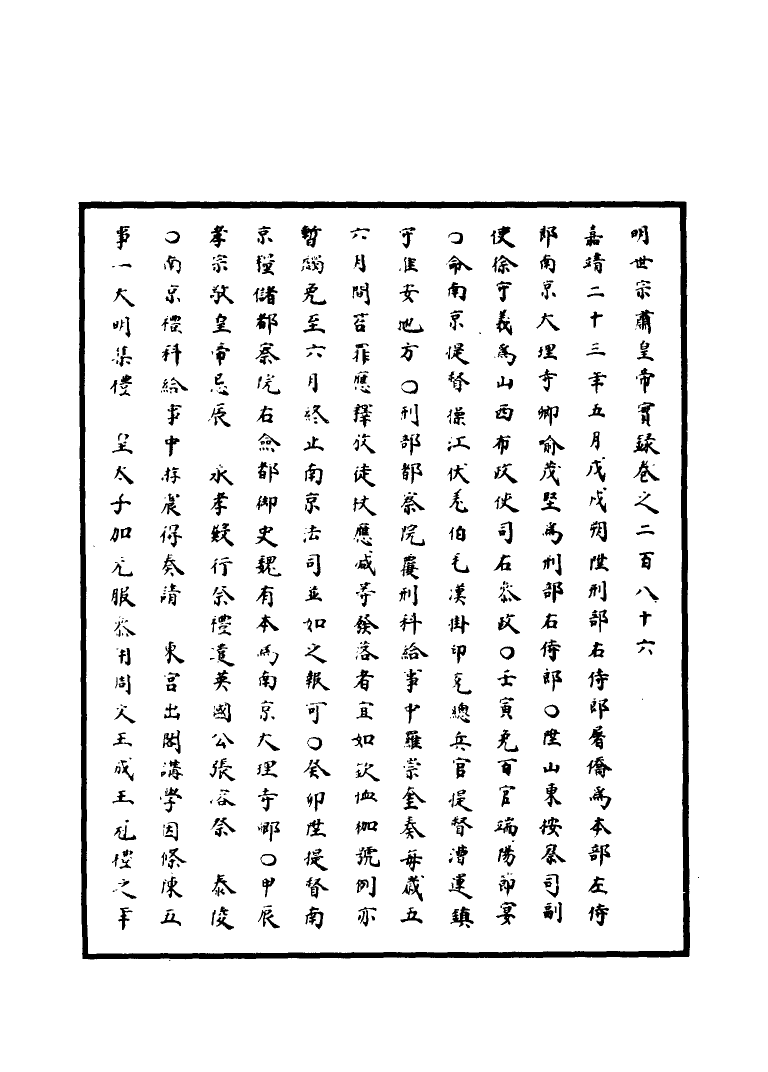 明世宗肅皇帝實録卷之二百八十六
嘉靖二十三年五月戊戌朔陞刑部右侍郎屠僑爲本部左侍
郎南京大理寺卿喻茂堅爲刑部右侍郎○陞山東按察司副
使徐守義爲山西布政使司右叅政○壬寅免百官端陽節宴
○命南京提督操江伏羗伯毛漢掛印充總兵官提督漕運鎮
守淮安地方○刑部都察院覆刑科給事中羅崇奎奏每歲五
六月間笞罪應釋放徒杖應减等發落者宜如欽恤枷號例亦
暫蠲免至六月終止南京法司並如之報可○癸卯陞提督南
京糧儲都察院右僉都御史魏有本爲南京大理寺卿○甲辰
孝宗敬皇帝忌辰　永孝殿行祭禮遣英國公張溶祭　泰陵
○南京禮科給事中游震得奏請　東宮出閣講學因條陳五
事一大明集禮　皇太子加元服叅用周文王成王冠禮之年